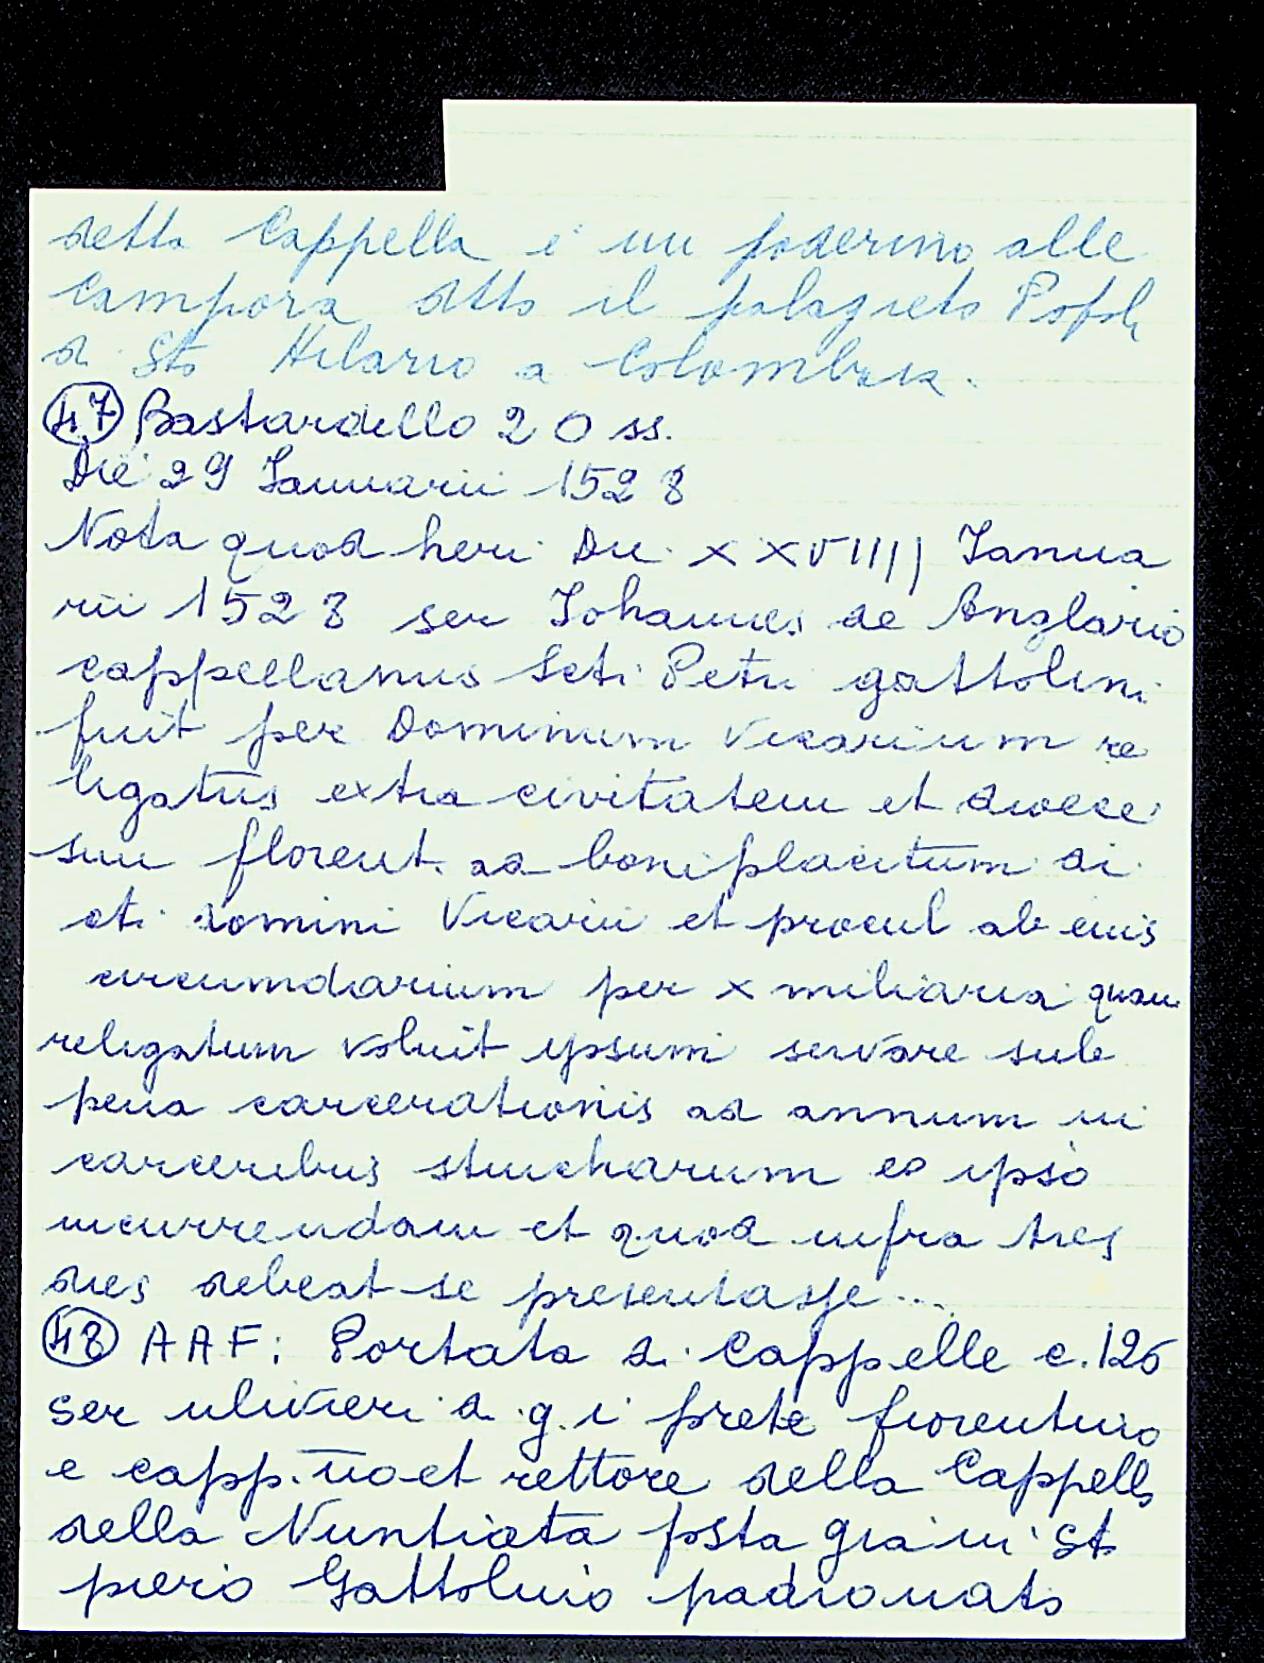 detta Cappella è un poderino alle
Campora dtto il palagieto Popolo
di Sto Hilario a Colombaia.
47 Bastardello 20 ss.
Die 29 Januarii 1528
Nota quod heri Die XXVIIII Janua
rii 1528 ser Johannes de Anglario
cappellanus Scti Petri gattolini
fuit per Dominum Vicarium re
ligatus extra civitatem et dioece
sim florent. ad beniplacitum di
cti domini Vicarii et procul ab eius
circumdarium per x miliaria quam
religatum voluit ipsum servare sub
pena carcerationis ad annum in
carceribus stincharum eo ipso
incurrendam et quod infra tres
dies debeat se presentasse...
48 AAF: Portata di Cappelle c. 126
ser ulivieri di g. i prete fiorentino
e capp.no et rettore della Cappella
della Nuntiata posta gia in St
piero Gattolino padronato